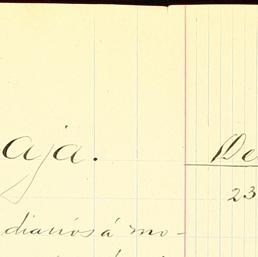 aja.
De
23
diarios á mo-